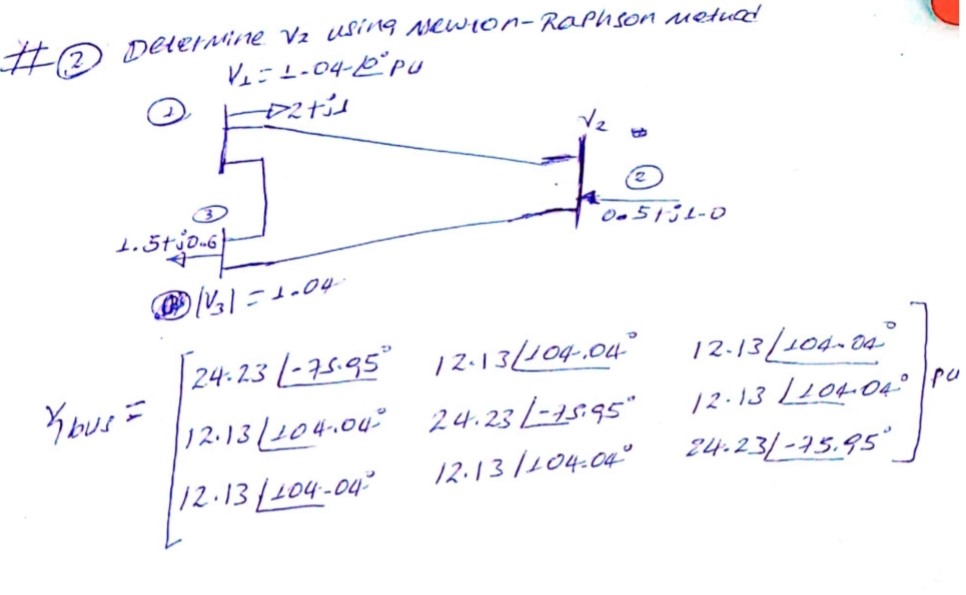 #② Determine V2 using Newton-Raphson Metuod
V1 = 1.04∠0° PU
①
2+j1
V2
②
0.5+j1.0
③
1.5+j0.6
|V3| = 1.04
Ybus = [24.23∠-75.95° 12.13∠104.04° 12.13∠104.04°
12.13∠104.04° 24.23∠-75.95° 12.13∠104.04°
12.13∠104.04° 12.13∠104.04° 24.23∠-75.95°] PU